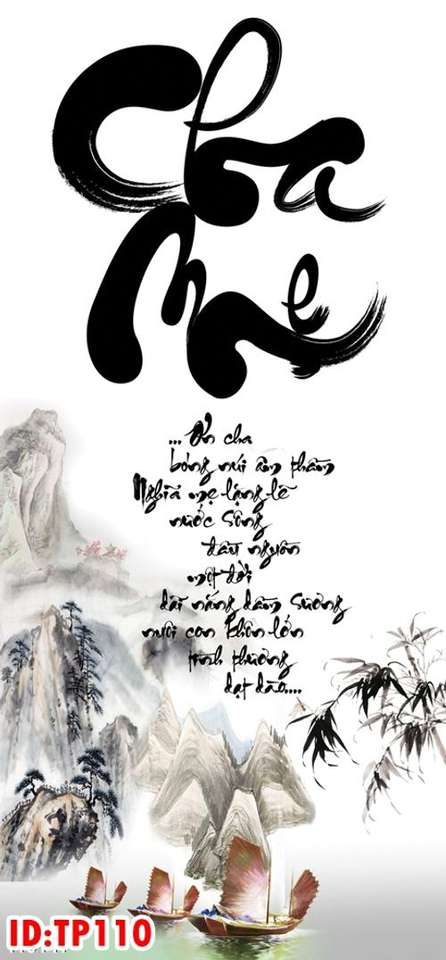 Cha
Mẹ
... Ơn cha
bóng núi âm thầm
Nghĩa mẹ lặng lẽ
nước sông
đầu nguồn
một đời
dãi nắng dầm sương
nuôi con khôn lớn
tình thương
dạt dào....
ID:TP110